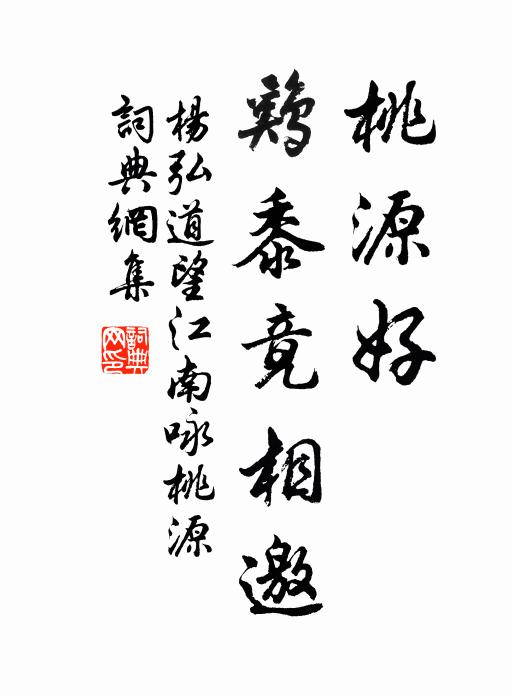 桃源好
鷄黍竟相邀
楊弘道望江南咏桃源
詞典網集
詞典
网印